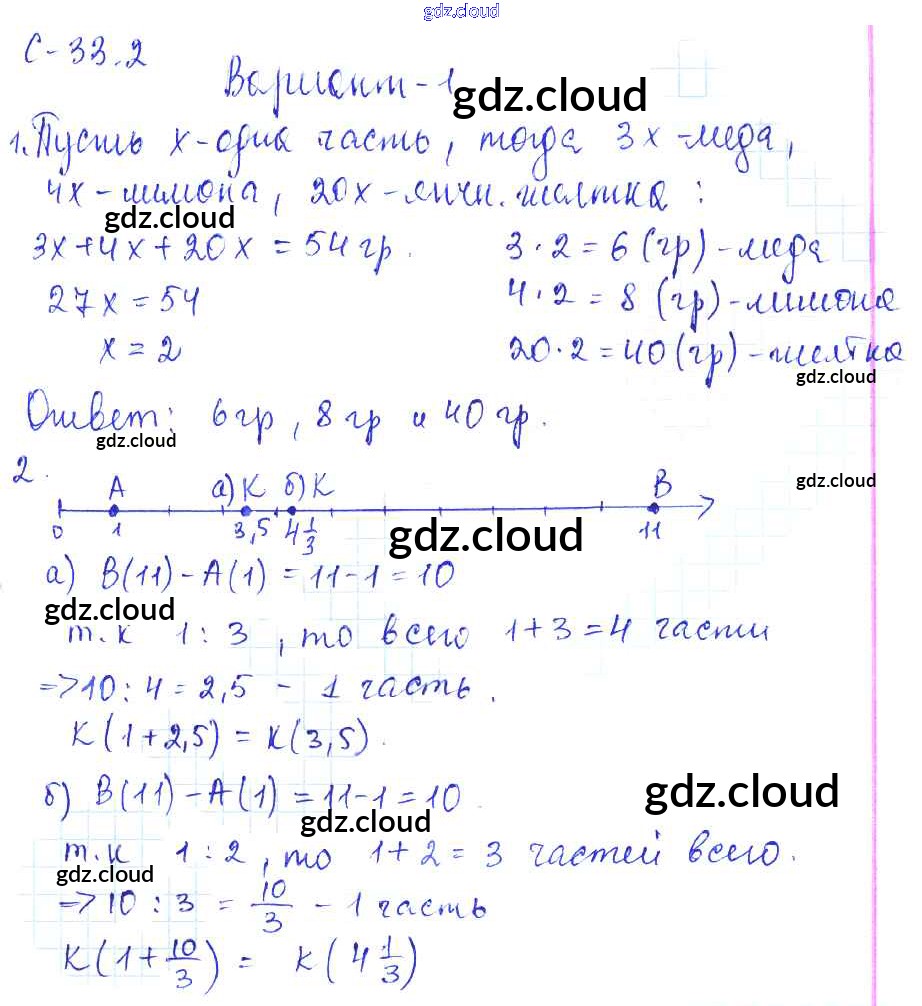 gdz.cloud
С-33.2
Вариант-1
gdz.cloud
1. Пусть х-одна часть, тогда 3х-меда,
4х-лимона, 20х-яичн. желтка:
gdz.cloud
3х+4х+20х = 54 гр. 3·2=6(гр)-меда
27х=54 4·2=8(гр)-лимона
х=2 20·2=40(гр)-желтка
gdz.cloud
Ответ: 6гр, 8гр и 40гр.
gdz.cloud
2.
gdz.cloud
А а)К б)К В
0 1 3,5 4 1/3 11
gdz.cloud
а) В(11)-А(1)=11-1=10
gdz.cloud
т.к 1:3, то всего 1+3=4 части
=>10:4=2,5 - 1 часть.
К(1+2,5)=К(3,5).
б) В(11)-А(1)=11-1=10.
gdz.cloud
gdz.cloud
т.к 1:2, то 1+2=3 частей всего.
gdz.cloud
=>10:3=10/3 - 1 часть
К(1+10/3) = К(4 1/3)